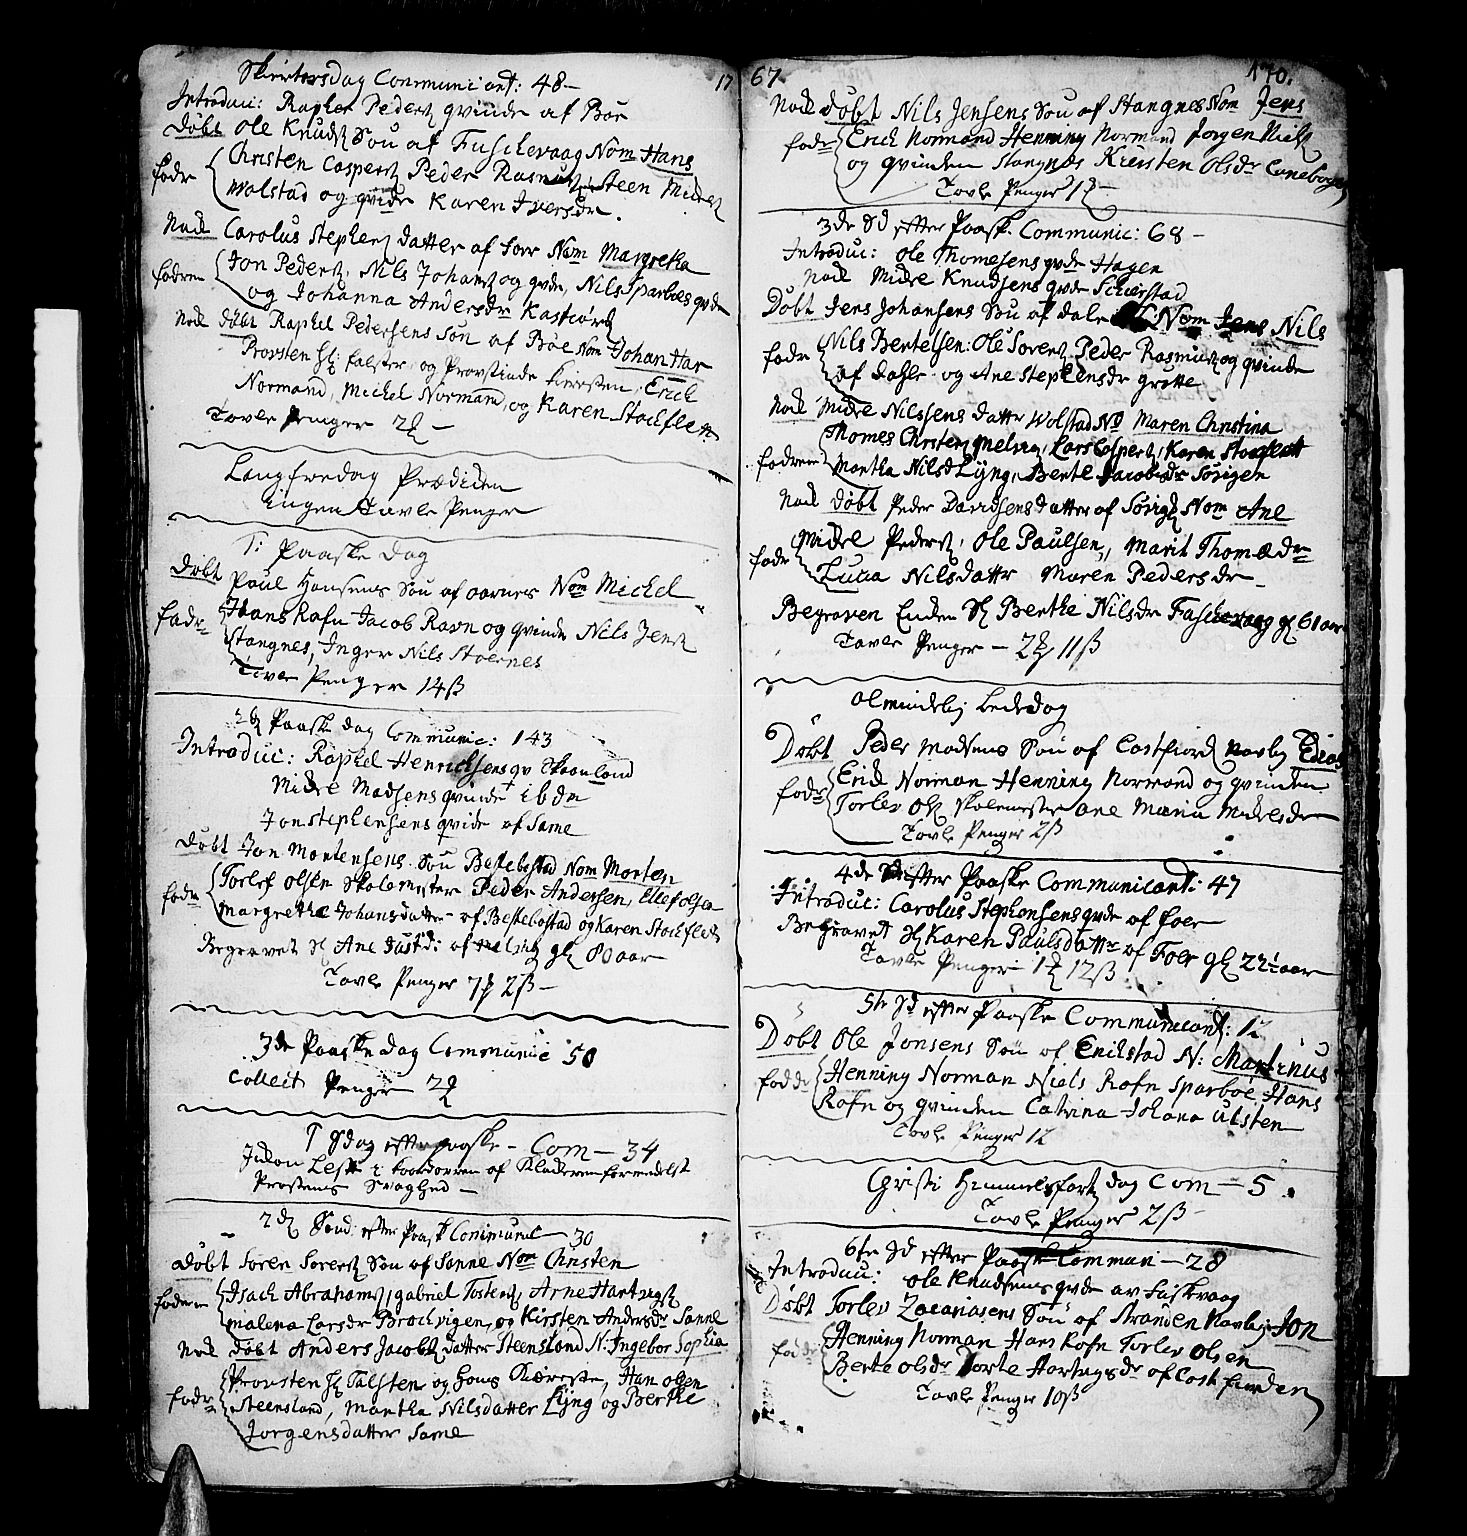 Skiertorsdag Communicant: 48 –
Introduc: Raphel Peders qvinde af Bøe
Døbt Ole Knuds Søn af Fuschevaag Nom Hans
fadr Christen Caspers Peder Rasmus Steen Midel
Wolstad og qvide Karen Iversdr.
Nock Carolus Stephens datter af foer Nom Margretha
fadrene Jon Peders, Nils Johans og qvde, Nils Sparboes qvde
og Johanna Andersdr
Nock døbt Raphel Pedersens Søn af Bøe Nom Johan Har
Provsten Hr: falster og Provstinde Kiersten, Erick
Normand, Michel Normand, og Karen Stockfleth
Tavle Penger 2
Langfredag Prædicken
ingen Tavle Penger
1: Paaske dag
Døbt Paul Hansens Søn af aarnes Nom Michel
fadr Hans Rafn Jacob Ravn og qvinde Nils Jens
Stangnes, Inger Nils Stoernes
Tavle Penger 14 ß
2 Paaske dag Communic: 143
Introduc: Raphel Henrichsens qv Skaanland
Midel Madsens qvinde ibdn
Jon Stephensens qvide af Same
døbt Jon Mortensens Søn Bestebostad Nom Morten
fadr Torlef olsen Skolemester Peder Andersen, Ellef olsen
Margrethe Johansdatter af Bestebostad og Karen Stockfleth
Begravet Sl Ane Justd: af gl 80 aar
Tavle Penger 7 2 ß –
3de Paaske dag Communic 50
Collect Penger 2
1 Sdag efter paaske – Com – 34
Lest i koordørren af Klockeren formedelst
Prostens Svaghed –
2d Sønd: efter Paask Communic 30
døbt Søren Sørens Søn af Sanne Nom Christen
fadrene Isach Abrahams, gabriel Tostens, Arne Hartvigs
malena Larsdr Brochvigen, og Kirsten Andersdr Sanne
Nock døbt Anders Jacobs datter Steensland N: Ingebor Sophia
fadr Provsten Hr Falsten og hans Kiæreste, Han olsen
Steensland, Martha Nilsdatter Lyng og Berthe
Jorgensdatter Same
17 67
170.
Nock døbt Nils Jensens Søn af Stangnes Nom Jens
fadr Erich Normand Henning Normand Jørgen Niels
og qvinden Stangnes Kiersten Olsdr
Tavle Penger 1
3de Sd efter Paaske Communic: 68 –
Introduc: Ole Thomesens qvde Hagen
Nock Midel Knudsens qvde
Døbt Jens Johansens Søn af dale Nom Jens Nils
fadr Nils Bertelsen: Ole Sørens, Peder Rasmus og qvinde
af dahle og Ane Stephensdr grotte
Nock Midel Nilssens datter Wolstad No Maren Christina
fadrene Thomes Christens Melvig, Lars Caspers, Karen
Martha Nilsd Lyng, Berte Jacobsdr Sørigen
Nock døbt Peder Davidsens datter af Sørig Nom Ane
fadr Midel Peders, Ole Paulsen, Marit Thomædr
Lucia Nilsdattr Maren Pedersdr –
Begraven Encken Sl Berthe Nilsdr Faschevaag gl 61 aar
Tavle Penger – 2 11 ß
Olmindelig bededag
Døbt Peder Madsens Søn af Costfiord navlig
fadr Erick Norman Henning Normand og qvinden
Torlev Ols Skolemester Ane Maria Midelsdr
Tavle Penger 2 ß
4de Sd efter Paaske Communicant: 47
Introduc: Carolus Stephensens qvde af foer
Begravet Sl Karen Paulsdattr af Foer gl 22½ aar
Tavle Penger 1 12 ß
5te Sd efter Paaske Communicant: 12
Døbt Ole Jonsens Søn af Erikstad N: Martinus
fadde Henning Norman Niels Rafn Sparboe, Hans
Rafn og qvinden Catrina Johana Ulsten
Tavle Penger 12
Christi Himmelsfarts dag Com – 5
Tavle Penger 2 ß
6te Sd efter Paaske Commun – 28
Introduc: Ole Knudsens qvde av Fuskvaag
Døbt Torlev Zacariasens Søn af Stranden navlig Jon
fadde Henning Norman Hans Rafn Torlev Olsen
Berte olsdr Dorte Hartvigsdr af
Tavle Penger 10 ß